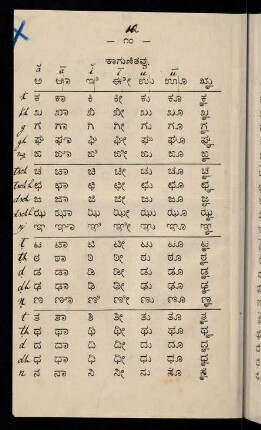 — ೧೦ —
ಕಾಗುಣಿತವು.
ă ā ĭ ī ŭ ū
ಅ ಆ ಇ ಈ ಉ ಊ ಋ
k ಕ ಕಾ ಕಿ ಕೀ ಕು ಕೂ ಕೃ
kh ಖ ಖಾ ಖಿ ಖೀ ಖು ಖೂ ಖೃ
g ಗ ಗಾ ಗಿ ಗೀ ಗು ಗೂ ಗೃ
gh ಘ ಘಾ ಘಿ ಘೀ ಘು ಘೂ ಘೃ
ng ಙ ಙಾ ಙಿ ಙೀ ಙು ಙೂ ಙೃ
tsch ಚ ಚಾ ಚಿ ಚೀ ಚು ಚೂ ಚೃ
tschh ಛ ಛಾ ಛಿ ಛೀ ಛು ಛೂ ಛೃ
dsch ಜ ಜಾ ಜಿ ಜೀ ಜು ಜೂ ಜೃ
dschh ಝ ಝಾ ಝಿ ಝೀ ಝು ಝೂ ಝೃ
ಞ ಞಾ ಞಿ ಞೀ ಞು ಞೂ ಞೃ
t ಟ ಟಾ ಟಿ ಟೀ ಟು ಟೂ ಟೃ
th ಠ ಠಾ ಠಿ ಠೀ ಠು ಠೂ ಠೃ
d ಡ ಡಾ ಡಿ ಡೀ ಡು ಡೂ ಡೃ
dh ಢ ಢಾ ಢಿ ಢೀ ಢು ಢೂ ಢೃ
n ಣ ಣಾ ಣಿ ಣೀ ಣು ಣೂ ಣೃ
t ತ ತಾ ತಿ ತೀ ತು ತೂ ತೃ
th ಥ ಥಾ ಥಿ ಥೀ ಥು ಥೂ ಥೃ
d ದ ದಾ ದಿ ದೀ ದು ದೂ ದೃ
dh ಧ ಧಾ ಧಿ ಧೀ ಧು ಧೂ ಧೃ
n ನ ನಾ ನಿ ನೀ ನು ನೂ ನೃ